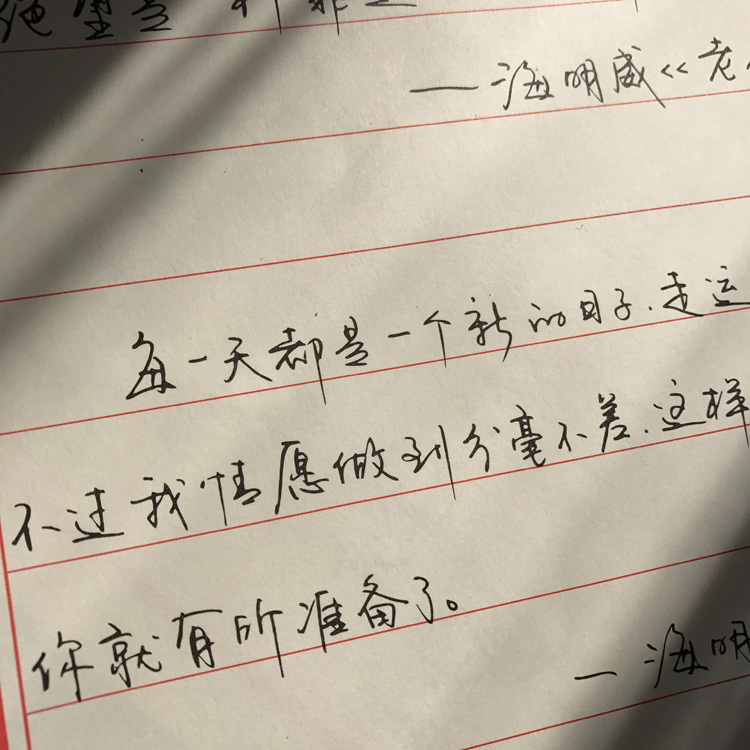 ——海明威《老
每一天都是一个新的日子.走运
不过我情愿做到分毫不差.这样
你就有所准备了。
—海明